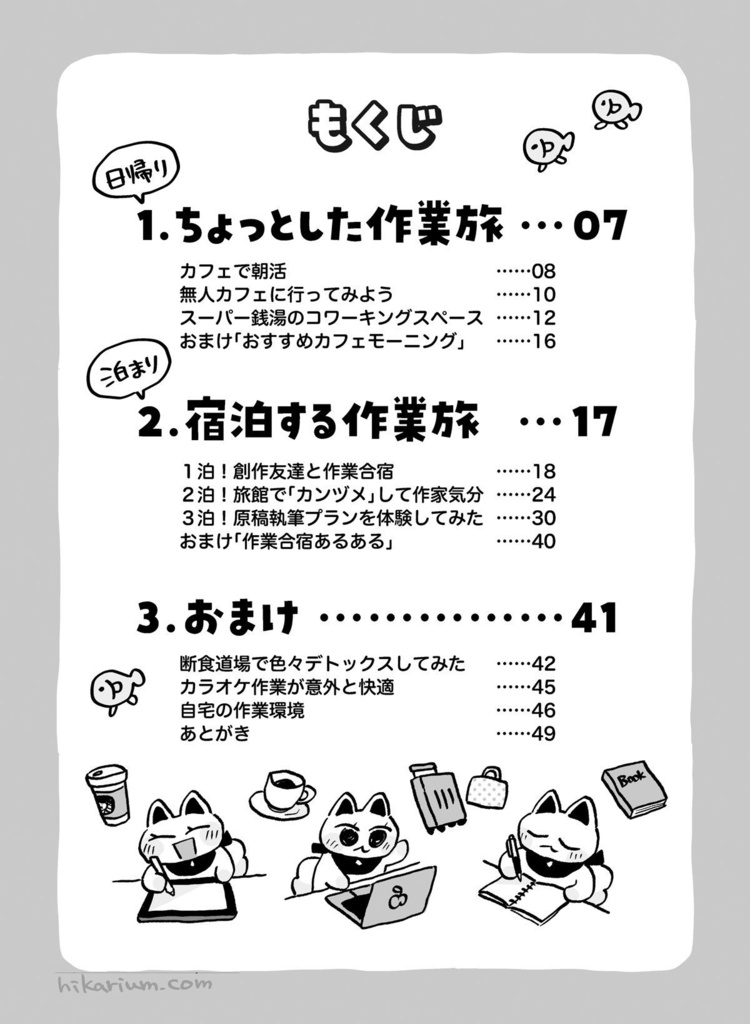 もくじ
日帰り
1.ちょっとした作業旅 …07
カフェで朝活 ……08
無人カフェに行ってみよう ……10
スーパー銭湯のコワーキングスペース ……12
おまけ「おすすめカフェモーニング」 ……16
泊まり
2.宿泊する作業旅 …17
1泊！創作友達と作業合宿 ……18
2泊！旅館で「カンヅメ」して作家気分 ……24
3泊！原稿執筆プランを体験してみた ……30
おまけ「作業合宿あるある」 ……40
3.おまけ ……………41
断食道場で色々デトックスしてみた ……42
カラオケ作業が意外と快適 ……45
自宅の作業環境 ……46
あとがき ……49
Book
hikarium.com